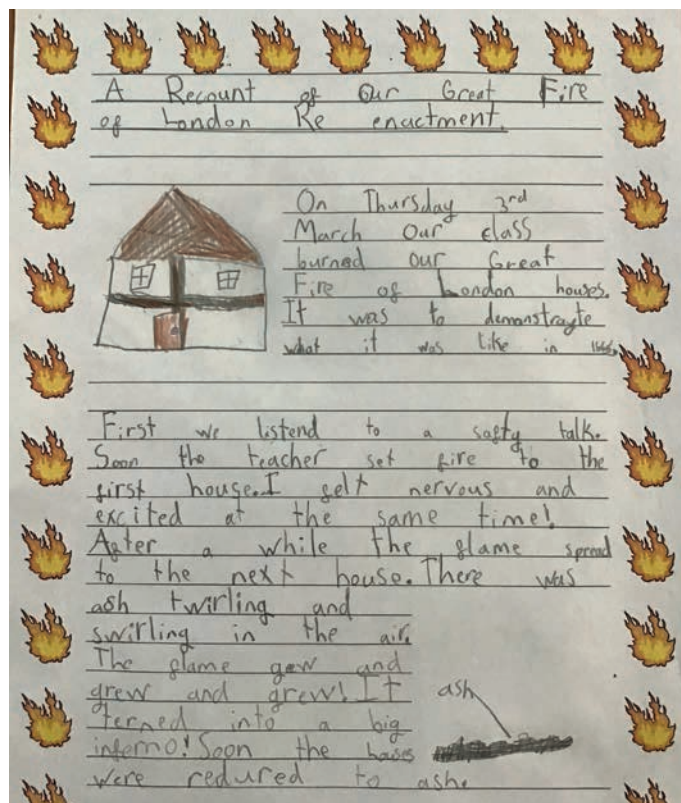 A Recount of Our Great Fire
of London Re enactment.
On Thursday 3rd
March Our class
burned our Great
Fire of London houses.
It was to demonstrayte
what it was like in 1666.
First we listend to a safty talk.
Soon the teacher set fire to the
first house. I felt nervous and
excited at the same time!
After a while the flame spread
to the next house. There was
ash twirling and
swirling in the air.
The flame gew and
grew and grew! It
terned into a big
inferno! Soon the houses
were redured to ash.
ash